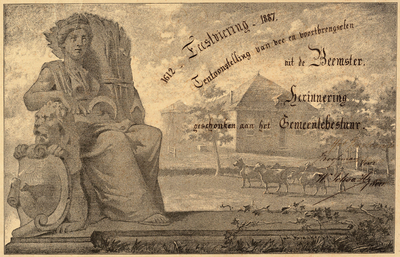 1612 - Feestviering - 1887.
Tentoonstelling van vee en voortbrengselen
uit de Beemster.
Herinnering
geschonken aan het Gemeentebestuur.